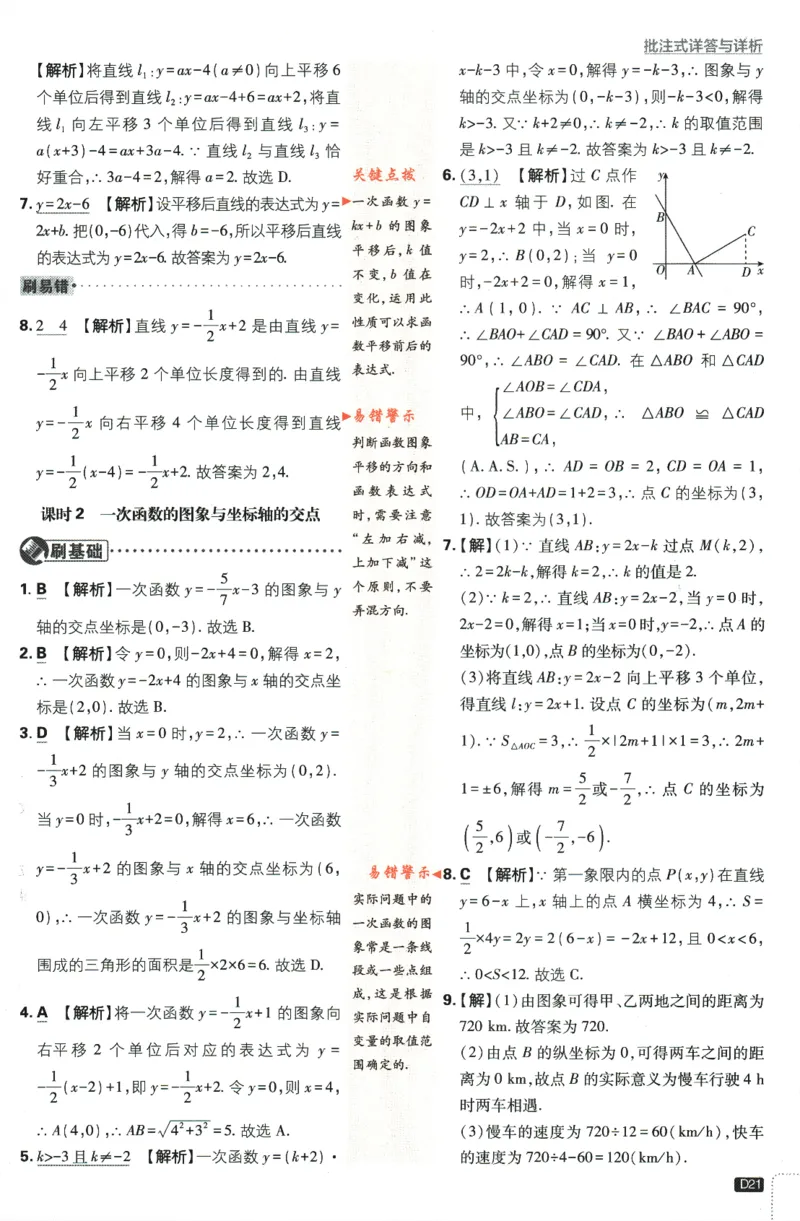 批注式详答与详析
【解析】将直线 l₁:y=ax-4(a≠0)向上平移6
个单位后得到直线 l₂:y=ax-4+6=ax+2,将直
线 l₁ 向左平移 3 个单位后得到直线 l₃:y=
a(x+3)-4=ax+3a-4.∵直线 l₂ 与直线 l₃ 恰
好重合,∴3a-4=2,解得 a=2.故选 D.
7. y=2x-6 【解析】设平移后直线的表达式为 y=
2x+b.把(0,-6)代入,得 b=-6,所以平移后直线
的表达式为 y=2x-6.故答案为 y=2x-6.
刷易错
8. 2 4 【解析】直线 y=-1/2x+2 是由直线 y=
-1/2x 向上平移 2 个单位长度得到的.由直线
y=-1/2x 向右平移 4 个单位长度得到直线
y=-1/2(x-4)=-1/2x+2.故答案为 2,4.
课时2 一次函数的图象与坐标轴的交点
刷基础
1. B 【解析】一次函数 y=-5/7x-3 的图象与 y
轴的交点坐标是(0,-3).故选 B.
2. B 【解析】令 y=0,则-2x+4=0,解得 x=2,
∴一次函数 y=-2x+4 的图象与 x 轴的交点坐
标是(2,0).故选 B.
3. D 【解析】当 x=0 时,y=2,∴一次函数 y=
-1/3x+2 的图象与 y 轴的交点坐标为(0,2).
当 y=0 时,-1/3x+2=0,解得 x=6,∴一次函数
y=-1/3x+2 的图象与 x 轴的交点坐标为(6,
0),∴一次函数 y=-1/3x+2 的图象与坐标轴
围成的三角形的面积是1/2×2×6=6.故选 D.
4. A 【解析】将一次函数 y=-1/2x+1 的图象向
右平移 2 个单位后对应的表达式为 y=
-1/2(x-2)+1,即 y=-1/2x+2.令 y=0,则 x=4,
∴A(4,0),∴AB=√(4²+3²)=5.故选 A.
5. k>-3 且 k≠-2 【解析】一次函数 y=(k+2)·
关键点拨
一次函数 y=
kx+b 的图象
平移后,k 值
不变,b 值在
变化,运用此
性质可以求函
数平移前后的
表达式.
易错警示
判断函数图象
平移的方向和
函数表达式
时,需要注意
“左加右减,
上加下减”这
个原则,不要
弄混方向.
易错警示
实际问题中的
一次函数的图
象常是一条线
段或一些点组
成,这是根据
实际问题中自
变量的取值范
围确定的.
x-k-3 中,令 x=0,解得 y=-k-3,∴图象与 y
轴的交点坐标为(0,-k-3),则-k-3<0,解得
k>-3.又∵k+2≠0,∴k≠-2,∴k 的取值范围
是 k>-3 且 k≠-2.故答案为 k>-3 且 k≠-2.
6. (3,1) 【解析】过 C 点作
CD⊥x 轴于 D,如图.在
y=-2x+2 中,当 x=0 时,
y=2,∴B(0,2);当 y=0
时,-2x+2=0,解得 x=1,
y
B
C
O
A
D
x
∴A(1,0).∵AC⊥AB,∴∠BAC=90°,
∴∠BAO+∠CAD=90°.又∵∠BAO+∠ABO=
90°,∴∠ABO=∠CAD.在△ABO 和△CAD
∠AOB=∠CDA,
中, { ∠ABO=∠CAD, ∴△ABO≌△CAD
AB=CA,
(A.A.S.),∴AD=OB=2,CD=OA=1,
∴OD=OA+AD=1+2=3,∴点 C 的坐标为(3,
1).故答案为(3,1).
7.【解】(1)∵直线 AB:y=2x-k 过点 M(k,2),
∴2=2k-k,解得 k=2,∴k 的值是 2.
(2)∵k=2,∴直线 AB:y=2x-2,当 y=0 时,
2x-2=0,解得 x=1;当 x=0 时,y=-2,∴点 A 的
坐标为(1,0),点 B 的坐标为(0,-2).
(3)将直线 AB:y=2x-2 向上平移 3 个单位,
得直线 l:y=2x+1.设点 C 的坐标为(m,2m+
1).∵S△AOC=3,∴1/2×|2m+1|×1=3,∴2m+
1=±6,解得 m=5/2或-7/2,∴点 C 的坐标为
(5/2,6)或(-7/2,-6).
8. C 【解析】∵第一象限内的点 P(x,y)在直线
y=6-x 上,x 轴上的点 A 横坐标为 4,∴S=
1/2×4y=2y=2(6-x)=-2x+12,且 0<x<6,
∴0<S<12.故选 C.
9.【解】(1)由图象可得甲、乙两地之间的距离为
720 km.故答案为 720.
(2)由点 B 的纵坐标为 0,可得两车之间的距
离为 0 km,故点 B 的实际意义为慢车行驶 4 h
时两车相遇.
(3)慢车的速度为 720÷12=60(km/h),快车
的速度为 720÷4-60=120(km/h).
D21